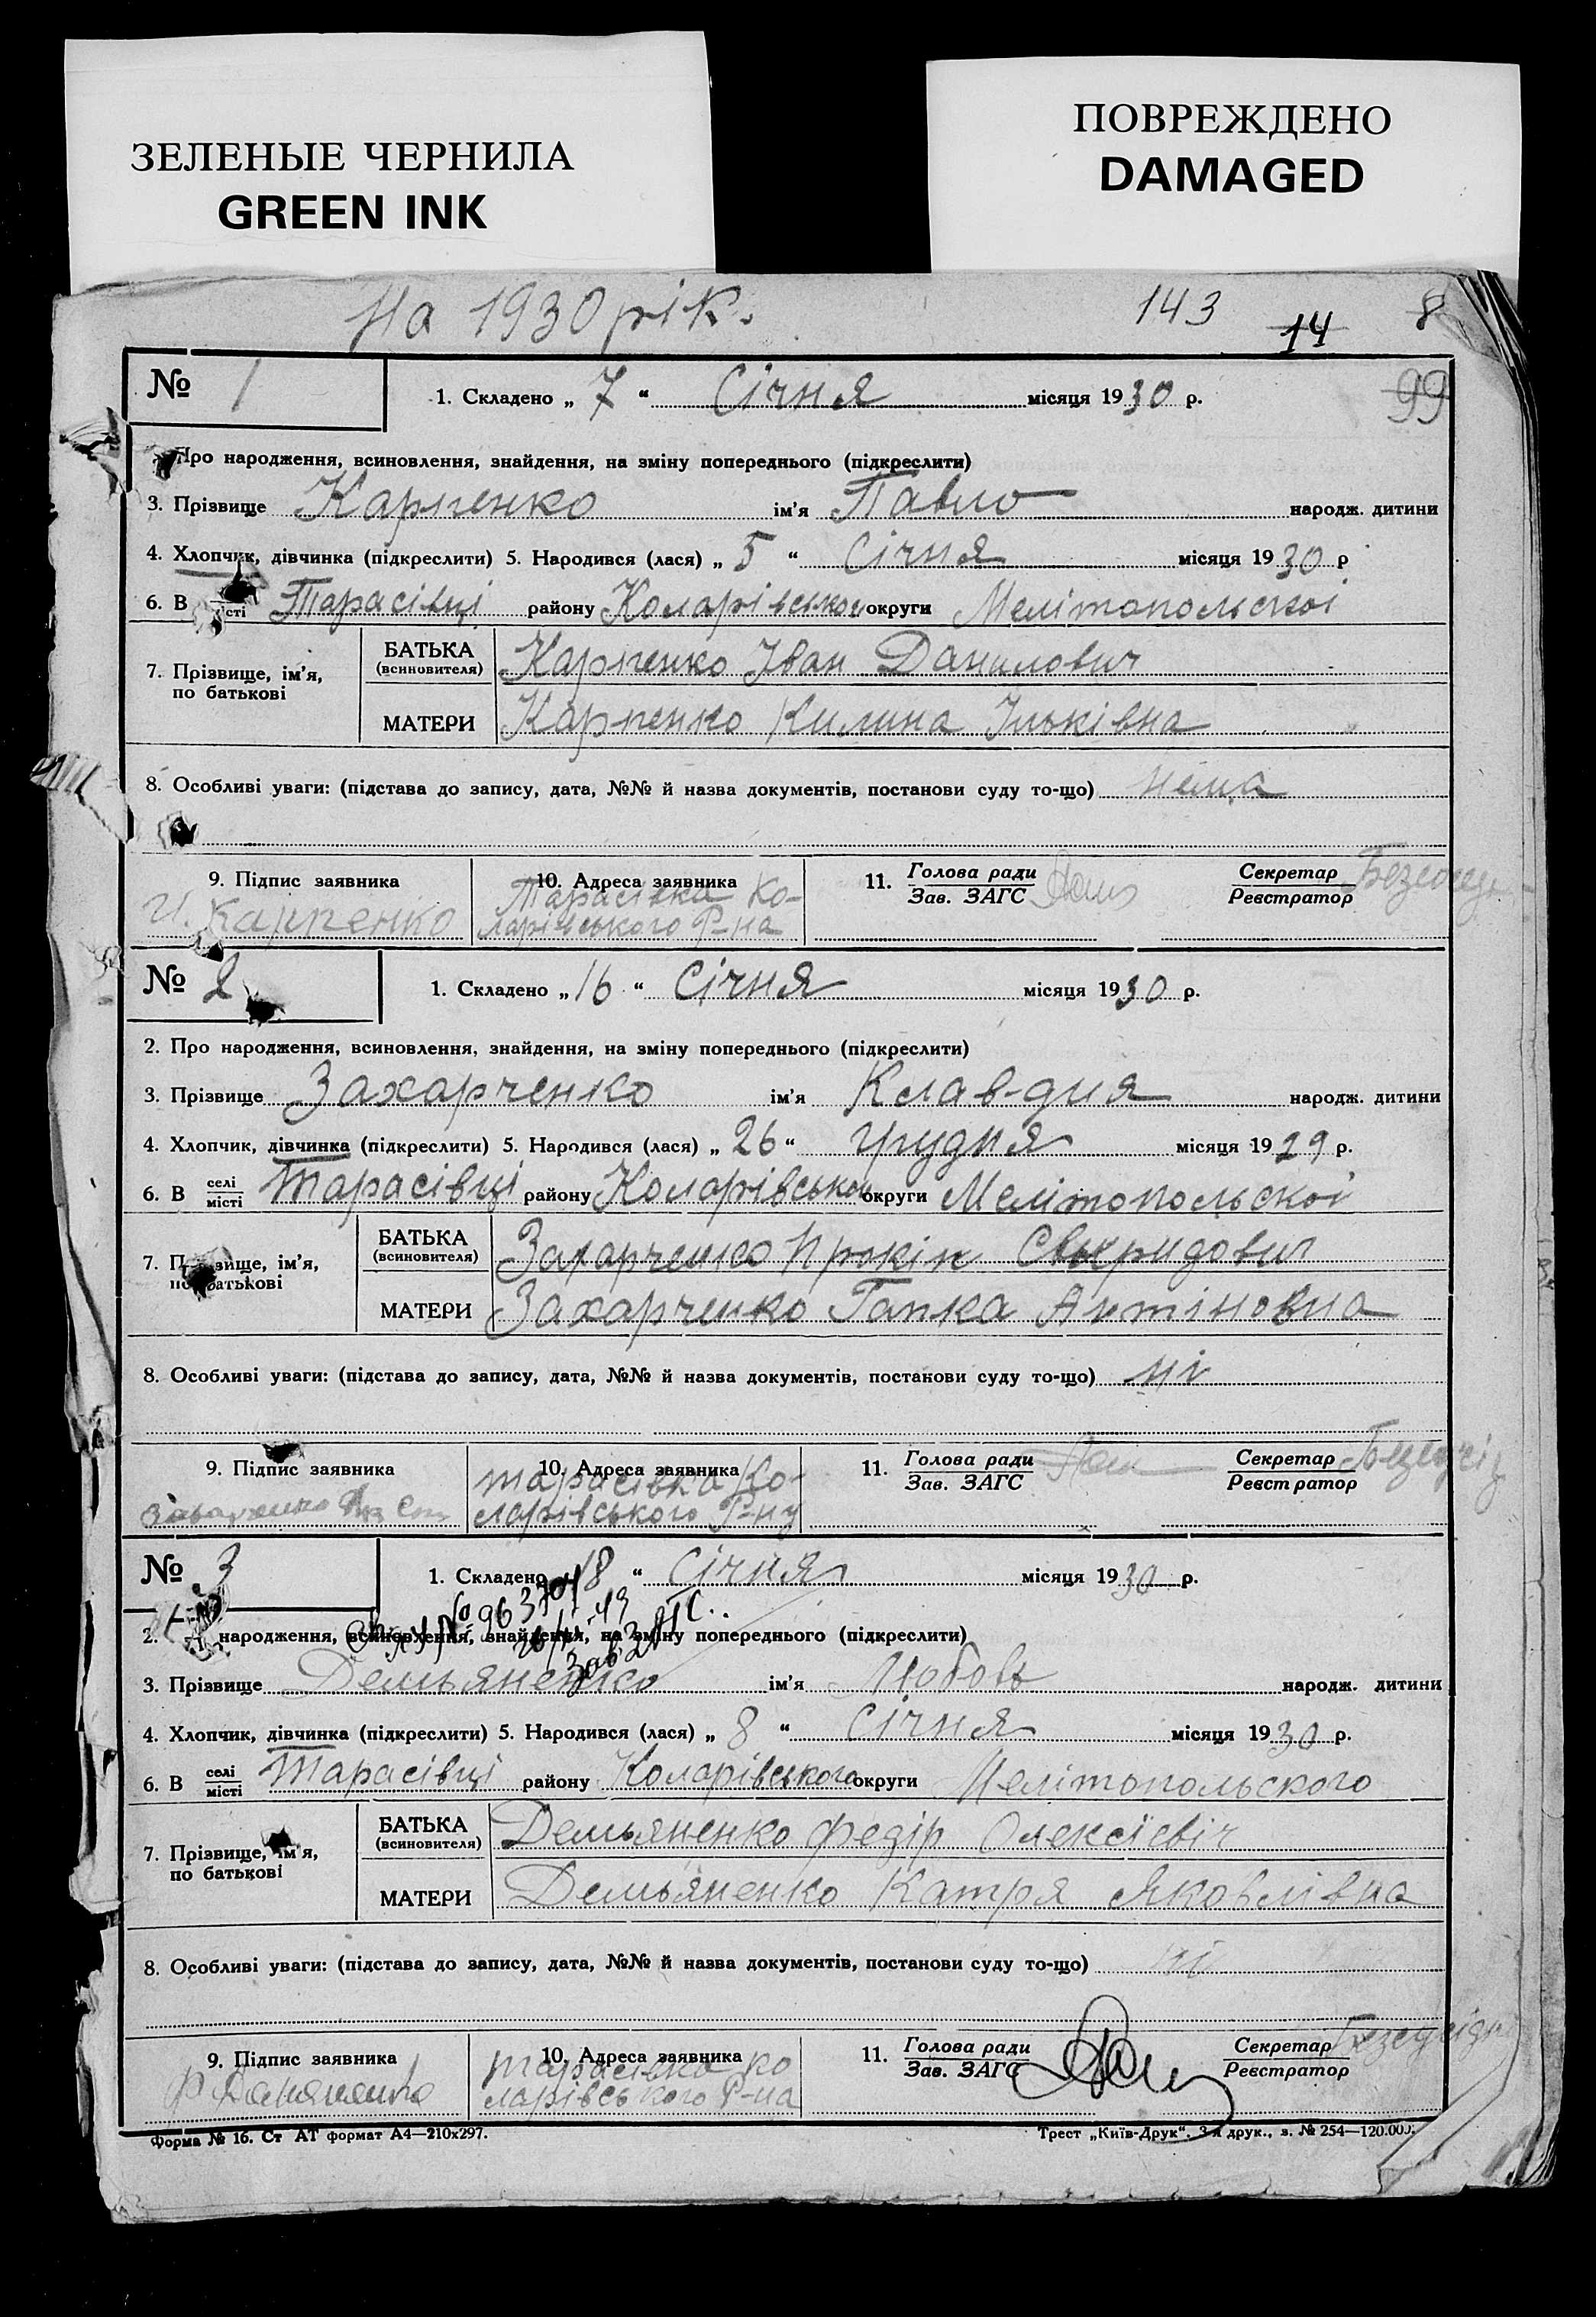 ЗЕЛЕНЫЕ ЧЕРНИЛА
GREEN INK
ПОВРЕЖДЕНО
DAMAGED
На 1930 рік.
143 14 8
99
№ 1
1. Складено „ 7 “ Січня місяця 1930 р.
Про народження, всиновлення, знайдення, на зміну попереднього (підкреслити)
3. Прізвище Карпенко ім'я Павло народж. дитини
4. Хлопчик, дівчинка (підкреслити) 5. Народився (лася) „ 5 “ Січня місяця 1930 р
6. В Тарасівці району Коларівської округи Мелітопольскої
7. Прізвище, ім'я, по батькові
БАТЬКА (всиновителя) Карпенко Іван Данилович
МАТЕРИ Карпенко Килина Ільківна
8. Особливі уваги: (підстава до запису, дата, №№ й назва документів, постанови суду то-що) нема
9. Підпис заявника
И. Карпенко
10. Адреса заявника
Тарасівка Ко-
ларівського Р-на
11. Голова ради
Зав. ЗАГС
Секретар
Реєстратор
№ 2
1. Складено „ 16 “ Січня місяця 1930 р.
2. Про народження, всиновлення, знайдення, на зміну попереднього (підкреслити)
3. Прізвище Захарченко ім'я Клавдия народж. дитини
4. Хлопчик, дівчинка (підкреслити) 5. Народився (лася) „ 26 “ грудня місяця 1929 р.
6. В селі місті Тарасівці району Коларівської округи Мелітопольскої
7. Прізвище, ім'я, по батькові
БАТЬКА (всиновителя) Захарченко Прокіп Свиридович
МАТЕРИ Захарченко Гапка Антіновна
8. Особливі уваги: (підстава до запису, дата, №№ й назва документів, постанови суду то-що) ні
9. Підпис заявника
10. Адреса заявника
Тарасівка Ко-
ларівського Р-ну
11. Голова ради
Зав. ЗАГС
Секретар
Реєстратор
№ 3
1. Складено 18 “ Січня місяця 1930 р.
2. народження, всиновлення, знайдення, на зміну попереднього (підкреслити)
3. Прізвище Демьяненко ім'я Любовь народж. дитини
4. Хлопчик, дівчинка (підкреслити) 5. Народився (лася) „ 8 “ Січня місяця 1930 р.
6. В селі місті Тарасівці району Коларівського округи Мелітопольского
7. Прізвище, ім'я, по батькові
БАТЬКА (всиновителя) Демьяненко Федір Олексієвіч
МАТЕРИ Демьяненко Катря Яковлівна
8. Особливі уваги: (підстава до запису, дата, №№ й назва документів, постанови суду то-що) ні
9. Підпис заявника
10. Адреса заявника
Тарасівка Ко
ларівського Р-на
11. Голова ради
Зав. ЗАГС
Секретар
Реєстратор
Форма № 16. Ст АТ формат А4—210х297.
Трест „Київ-Друк“. 3-я друк., з. № 254—120.000.